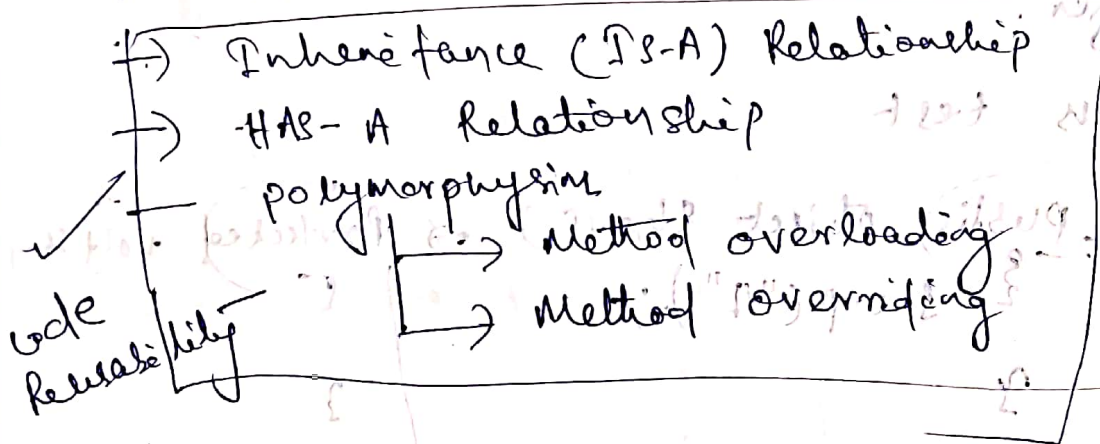 → Inheritance (IS-A) Relationship
→ HAS-A Relationship
polymorphysim
→ Method overloading
→ Method overriding
code
Reusability